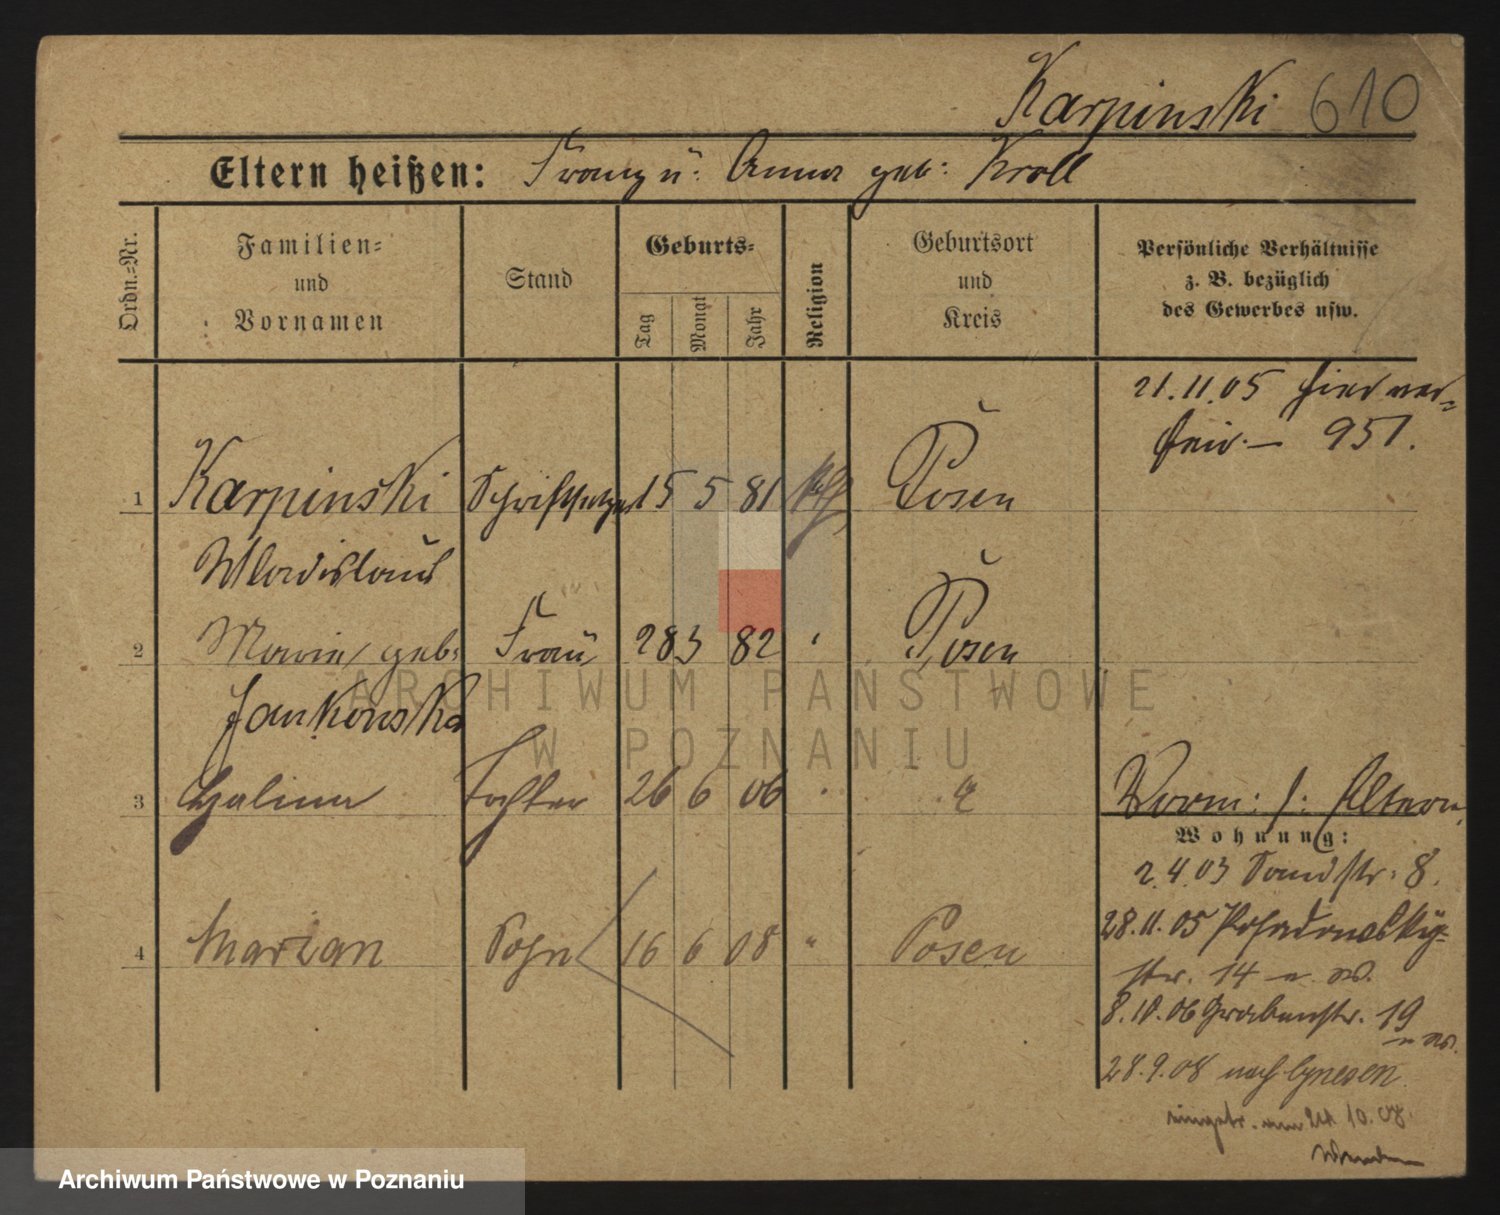 Karpinski 610
Eltern heißen: Franz u. Anna geb. Kroll
Ordn.=Nr.
Familien=
und
Vornamen
Stand
Geburts=
Tag
Monat
Jahr
Religion
Geburtsort
und
Kreis
Persönliche Verhältnisse
z. B. bezüglich
des Gewerbes usw.
21.11.05 hier ver=
heir. — 951.
1 Karpinski Schriftsetzer 15 5 81 kath Posen
Wladislaus
2 Marie, geb. Frau 28 3 82 " Posen
Jankowska
3 Halina Tochter 26 6 06 "
Worm: s: Eltern
Wohnung:
2.4.03 Sandstr. 8.
28.11.05 Posadowsky=
str. 14
4 Marian Sohn 16 6 08 " Posen
8.10.06 Grabenstr. 19
28.9.08 nach Gnesen
eingetr. 10.08.
ARCHIWUM PAŃSTWOWE
W POZNANIU
Archiwum Państwowe w Poznaniu